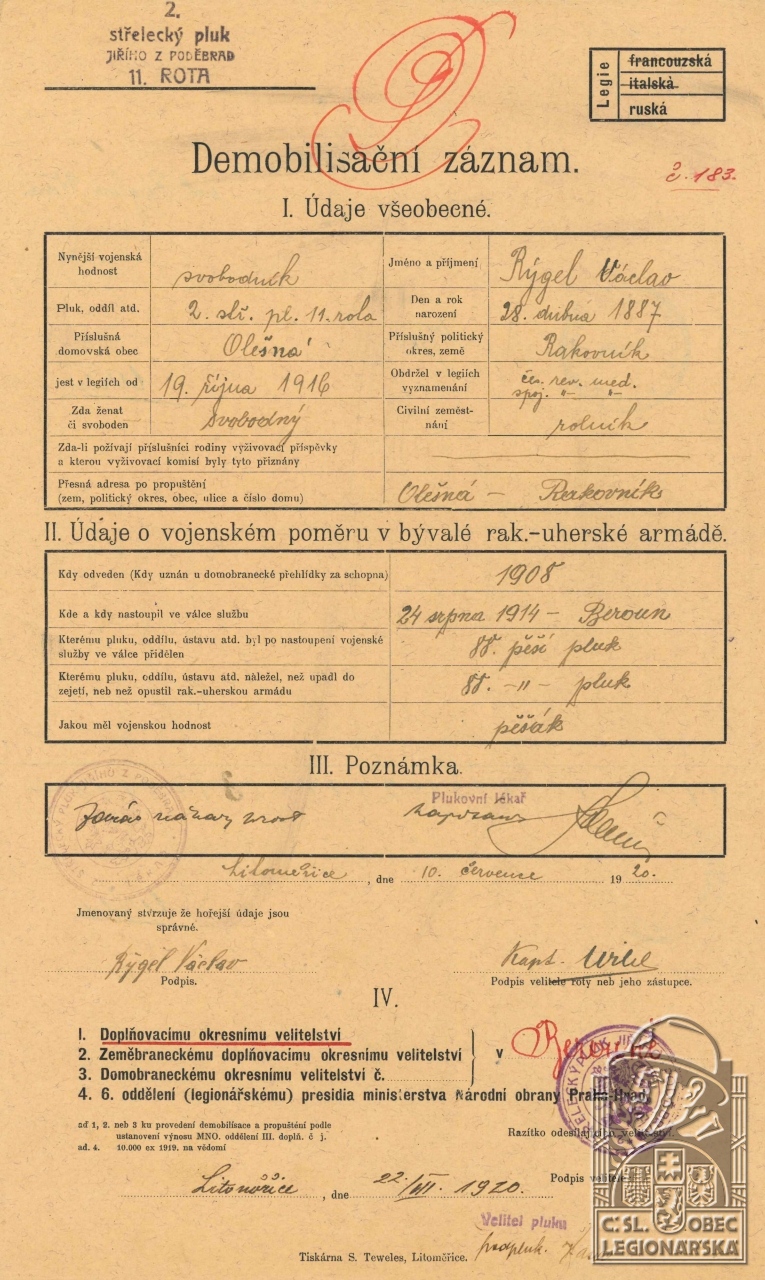 2.
střelecký pluk
JIŘÍHO Z PODĚBRAD
11. ROTA
Legie
francouzská
italská
ruská
Demobilisační záznam.
č. 183.
I. Údaje všeobecné.
Nynější vojenská hodnost svobodník
Jméno a příjmení Rýgel Václav
Pluk, oddíl atd. 2. stř. pl. 11. rota
Den a rok narození 28. dubna 1887
Příslušná domovská obec Olešná
Příslušný politický okres, země Rakovník
jest v legiích od 19. října 1916
Obdržel v legiích vyznamenání čes. rev. med.
spoj. -"- -"-
Zda ženat či svoboden svobodný
Civilní zaměstnání rolník
Zda-li požívají příslušníci rodiny vyživovací příspěvky
a kterou vyživovací komisí byly tyto přiznány
Přesná adresa po propuštění
(zem, politický okres, obec, ulice a číslo domu) Olešná — Rakovník
II. Údaje o vojenském poměru v bývalé rak.-uherské armádě.
Kdy odveden (Kdy uznán u domobranecké přehlídky za schopna) 1908
Kde a kdy nastoupil ve válce službu 24 srpna 1914 – Beroun
Kterému pluku, oddílu, ústavu atd. byl po nastoupení vojenské
služby ve válce přidělen 88. pěší pluk
Kterému pluku, oddílu, ústavu atd. náležel, než upadl do
zejetí, neb než opustil rak.-uherskou armádu 88. -"- pluk
Jakou měl vojenskou hodnost pěšák
III. Poznámka.
Plukovní lékař
Litoměřice, dne 10. července 1920.
Jmenovaný stvrzuje že hořejší údaje jsou
správné.
Rýgel Václav
Podpis.
Kapt.
Podpis velitele roty neb jeho zástupce.
IV.
1. Doplňovacímu okresnímu velitelství
2. Zeměbraneckému doplňovacímu okresnímu velitelství
3. Domobraneckému okresnímu velitelství č.
v
4. 6. oddělení (legionářskému) presidia ministerstva Národní obrany Praha-Hrad.
ad 1, 2. neb 3 ku provedení demobilisace a propuštění podle
ustanovení výnosu MNO. oddělení III. doplň. č j.
ad. 4. 10.000 ex 1919. na vědomí
Razítko odesílajících velitelství.
Litoměřice, dne 22/VII. 1920.
Podpis velitele
Velitel pluku
podpluk.
Tiskárna S. Teweles, Litoměřice.
Č.SL. OBEC
LEGIONÁŘSKÁ